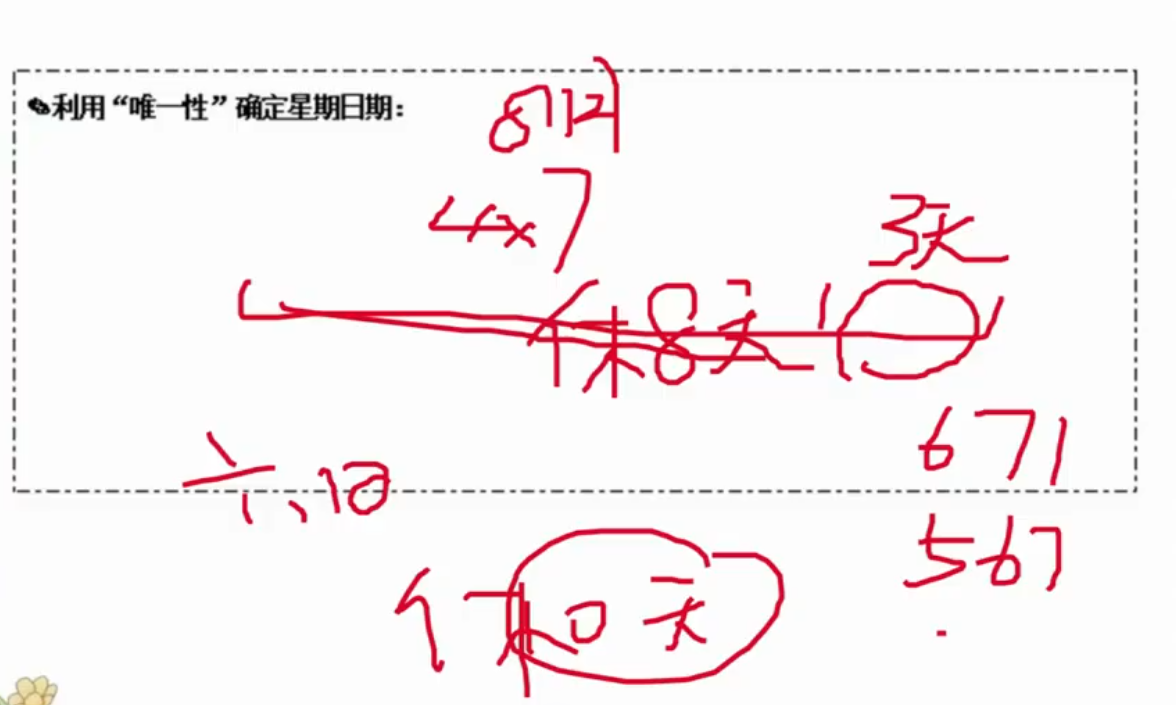 ✎利用“唯一性”确定星期日期：
8月
4×7
3天
休8天
671
六、日
567
休10天